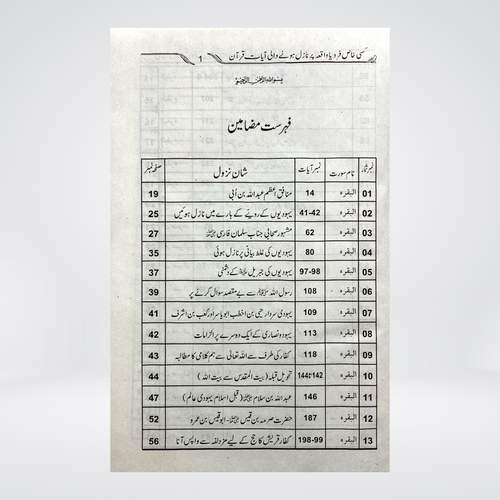 کسی خاص فرد یا واقعہ پر نازل ہونے والی آیات قرآن 1
بسم اللہ الرحمن الرحیم
فہرست مضامین
نمبر شمار نام سورت نمبر آیات شان نزول صفحہ نمبر
01 البقرہ 14 منافق اعظم عبداللہ بن اُبی 19
02 البقرہ 41-42 یہودیوں کے رویے کے بارے میں نازل ہوئیں 25
03 البقرہ 62 مشہور صحابی جناب سلمان فارسی 27
04 البقرہ 80 یہودیوں کی غلط بیانی پر نازل ہوئی 35
05 البقرہ 97-98 یہودیوں کی جبریل سے دشمنی 37
06 البقرہ 108 رسول اللہ سے بے مقصد سوال کرنے پر 39
07 البقرہ 109 یہودی سردار حیی بن اخطب ابو یاسر اور کعب بن اشرف 41
08 البقرہ 113 یہود و نصاریٰ کے ایک دوسرے پر الزامات 42
09 البقرہ 118 کفار کی طرف سے اللہ تعالیٰ سے ہم کلامی کا مطالبہ 43
10 البقرہ 142تا144 تحویل قبلہ (بیت المقدس سے بیت اللہ) 44
11 البقرہ 146 عبداللہ بن سلام (قبل اسلام یہودی عالم) 47
12 البقرہ 187 حضرت صرمہ بن قیس - ابو قیس بن عمرہ 52
13 البقرہ 198-99 کفار قریش کا حج کے لیے مزدلفہ سے واپس آنا 56